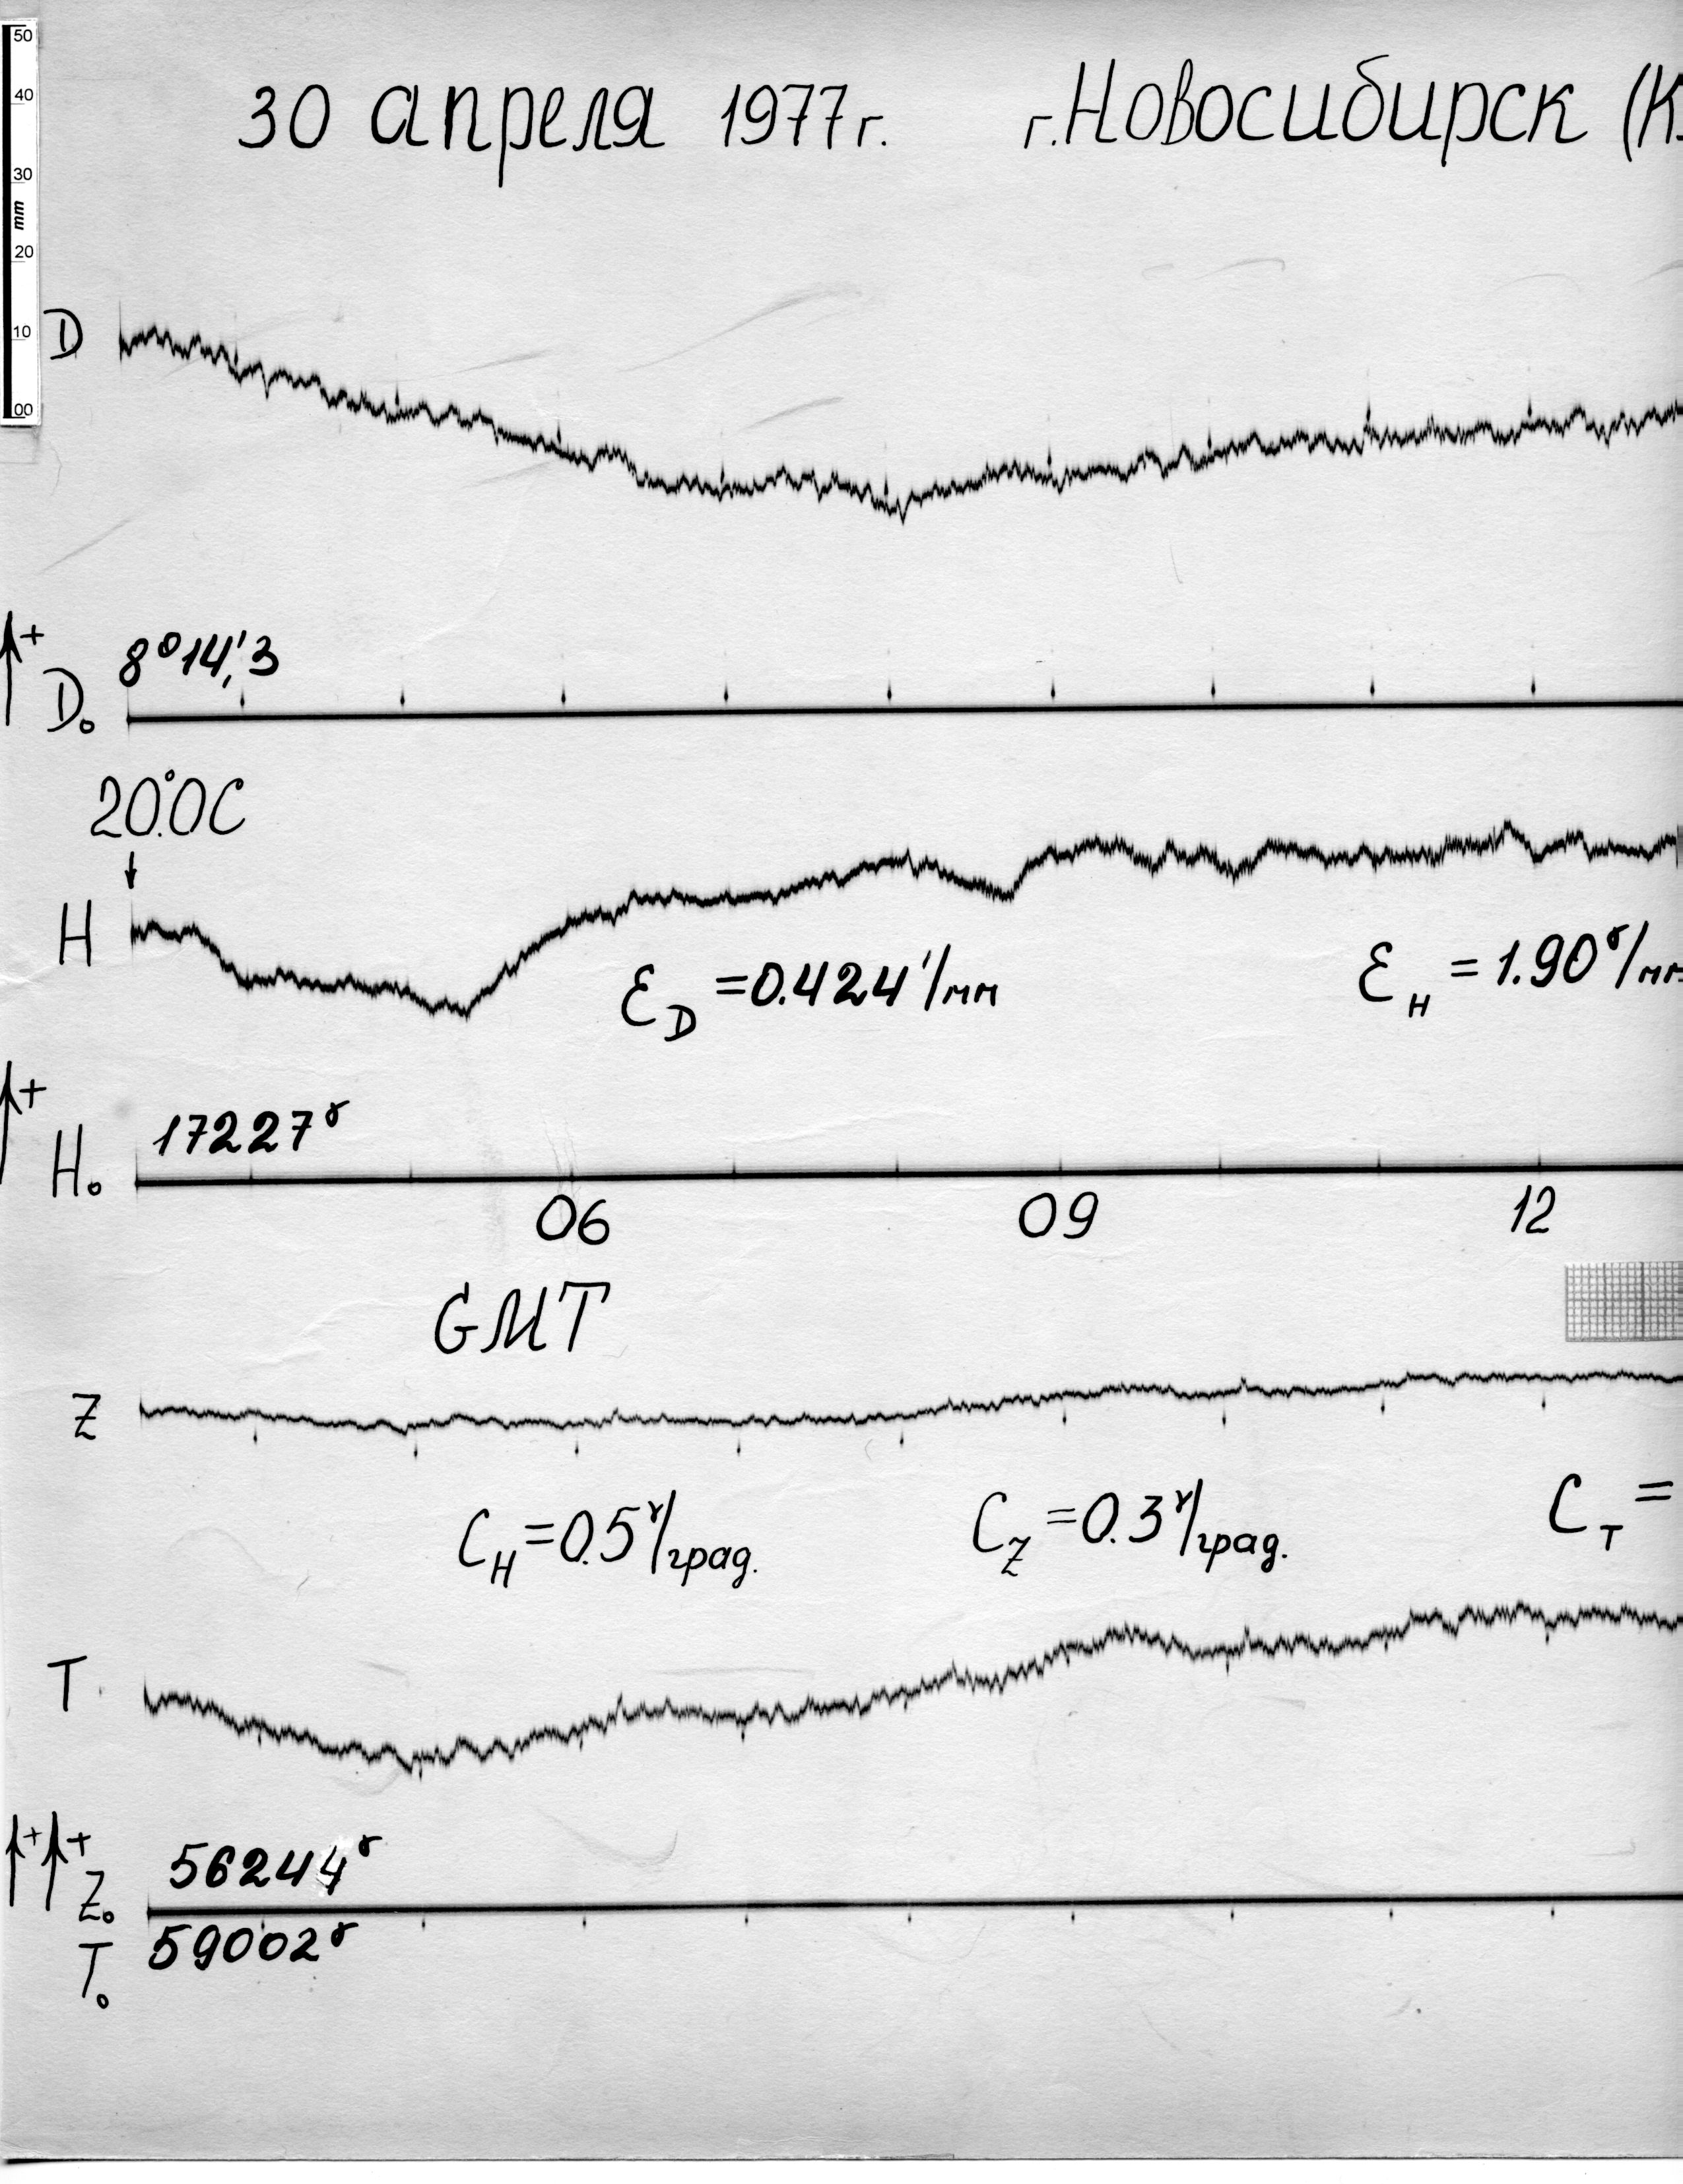 50
40
30
mm
20
10
00
30 апреля 1977г. г.Новосибирск (К
D
+
8°14,'3
D₀
20°.0C
H
ε_D =0.424'/мм ε_H =1.90ᵞ/мм
+
17227ᵞ
H₀
06 09 12
GMT
Z
C_H =0.5ᵞ/град. C_Z =0.3ᵞ/град. C_T =
T
+ +
56244ᵞ
Z₀
59002ᵞ
T₀